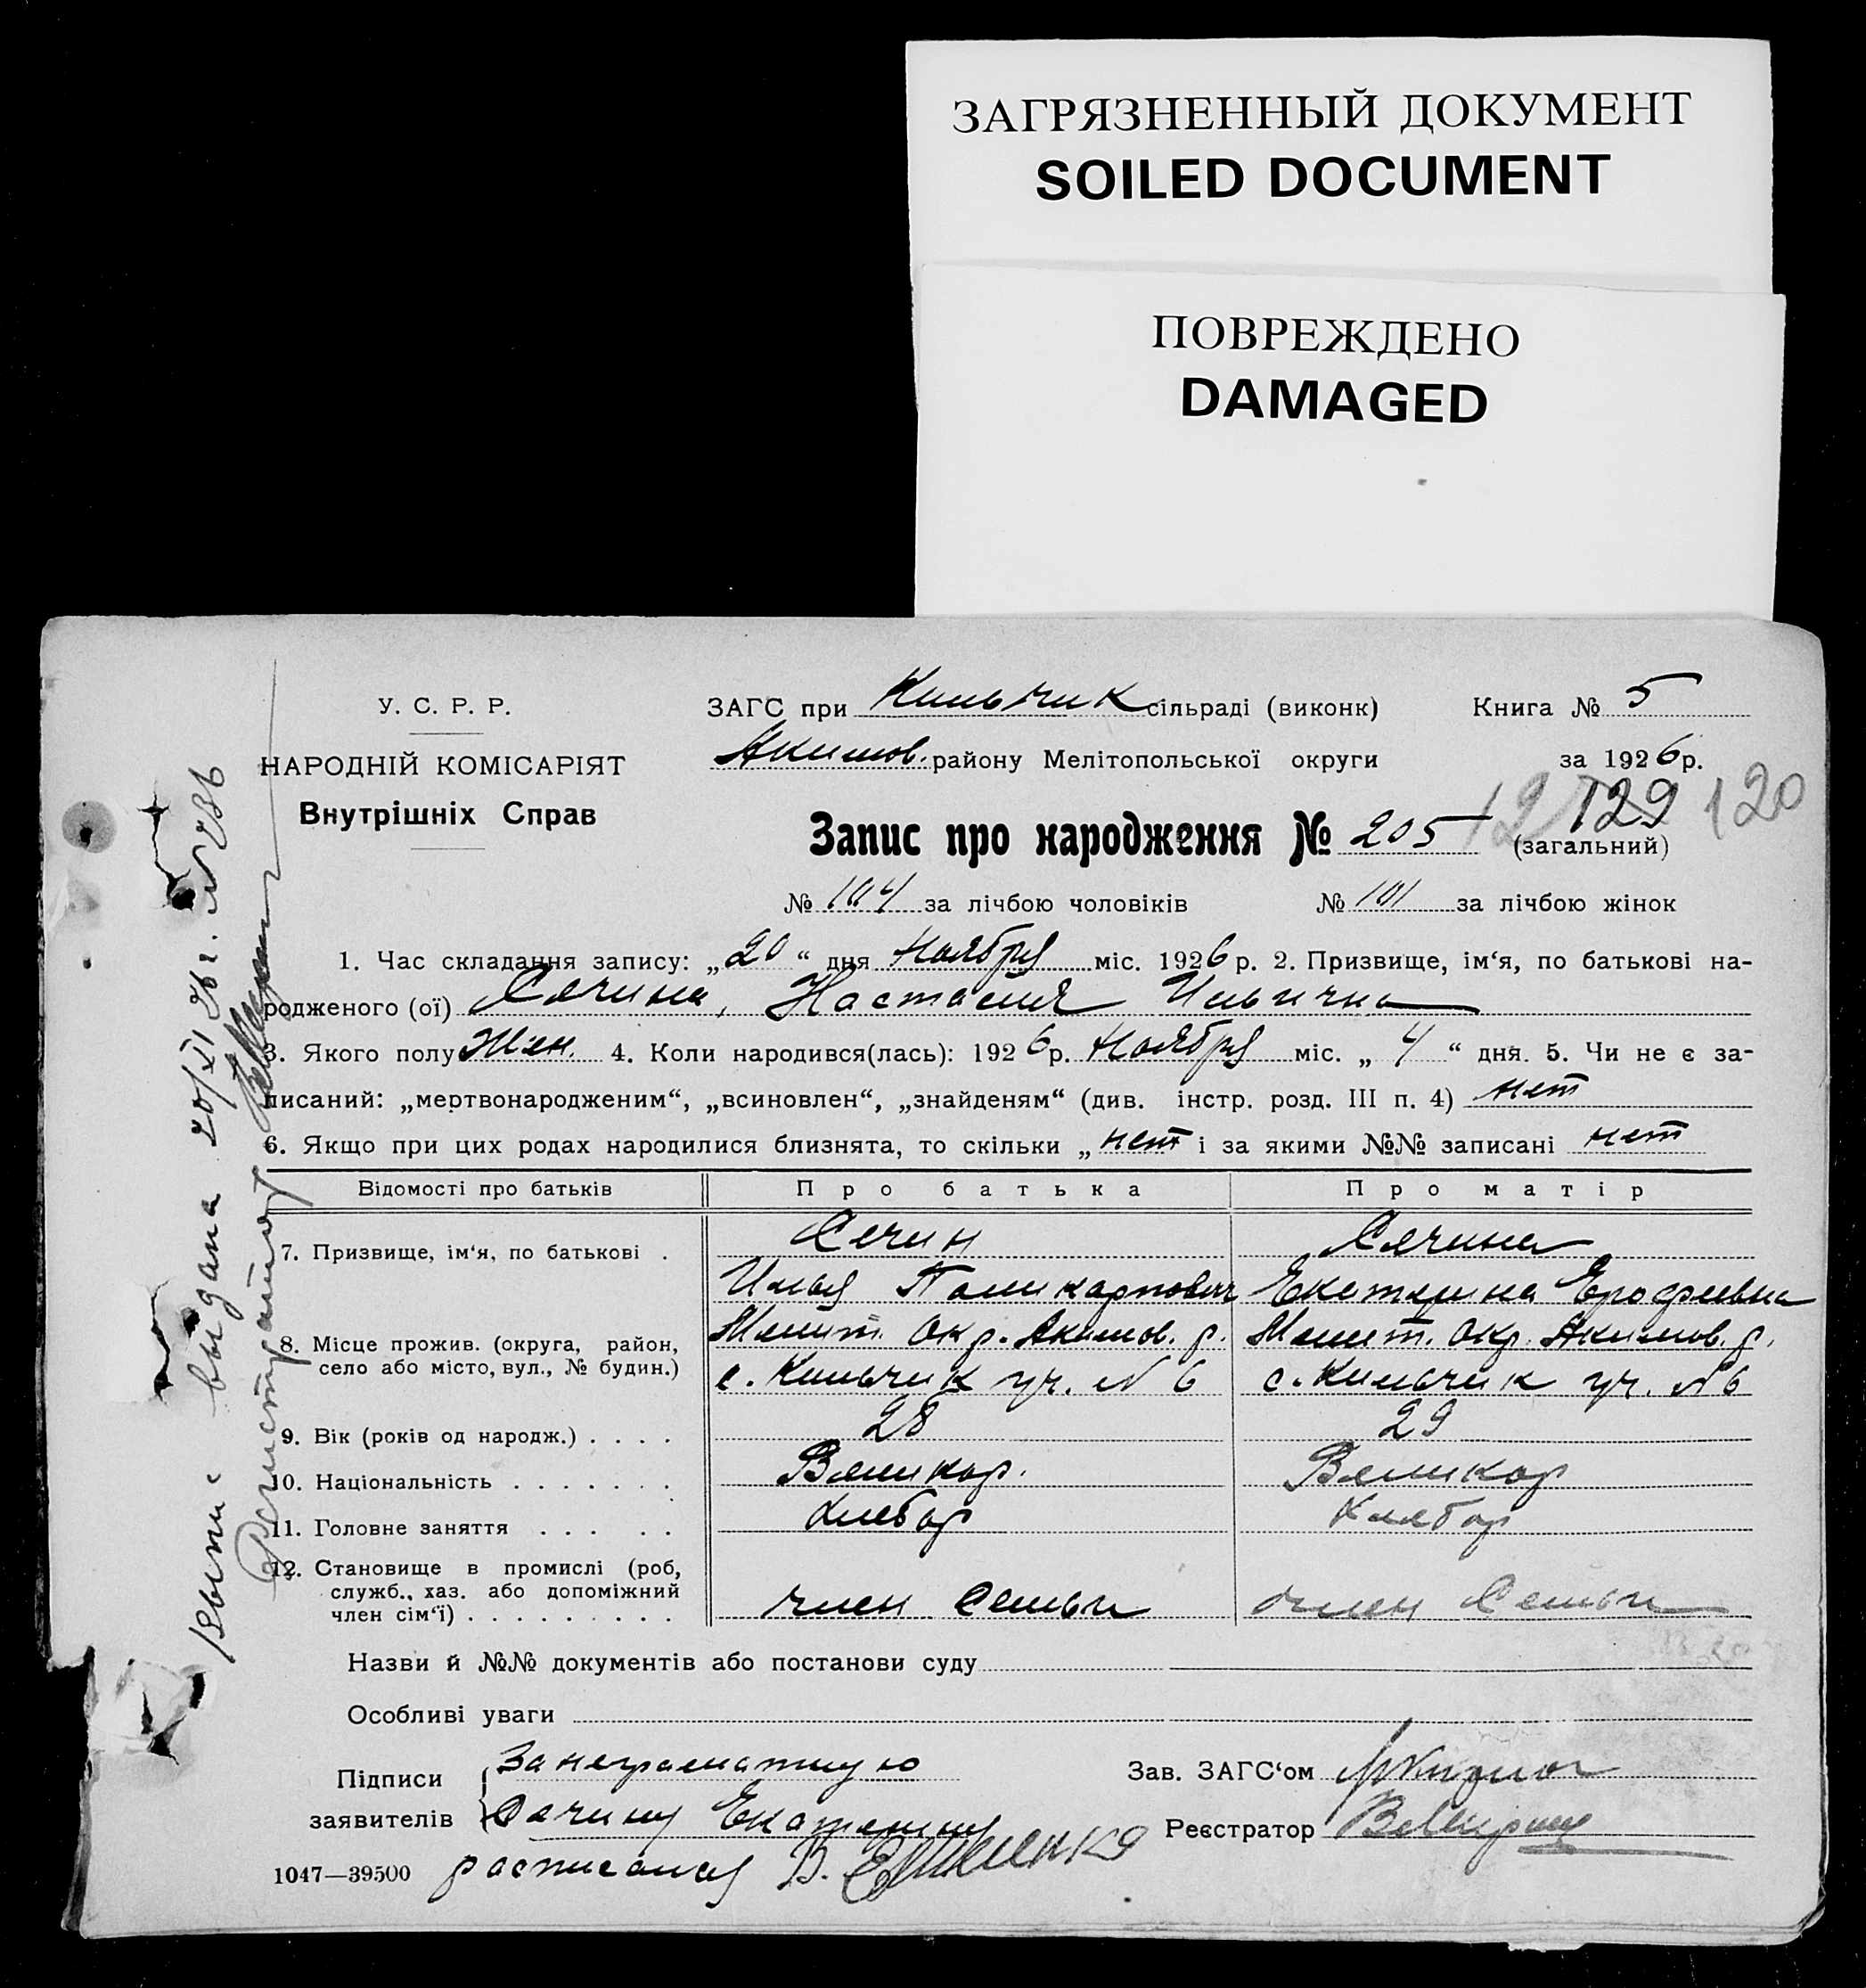 ЗАГРЯЗНЕННЫЙ ДОКУМЕНТ
SOILED DOCUMENT
ПОВРЕЖДЕНО
DAMAGED
У. С. Р. Р.
НАРОДНІЙ КОМІСАРІЯТ
Внутрішніх Справ
ЗАГС при Кильчик сільраді (виконк) Книга № 5
Акимов. району Мелітопольської округи за 1926 р.
129 120
Запис про народження № 205 (загальний)
№ 104 за лічбою чоловіків № 101 за лічбою жінок
1. Час складання запису: „20“ дня Ноября міс. 1926 р. 2. Призвище, ім‘я, по батькові на-
родженого (ої) Сечина, Настасия Ильична
3. Якого полу Жен. 4. Коли народився(лась): 1926 р. Ноября міс. „4“ дня. 5. Чи не є за-
писаний: „мертвонародженим“, „всиновлен“, „знайденям“ (див. інстр. розд. III п. 4) нет
6. Якщо при цих родах народилися близнята, то скільки „нет і за якими №№ записані нет
Відомості про батьків Про батька Про матір
7. Призвище, ім‘я, по батькові . Сечин Сечина
Илья Поликарпович Екатерина Ерофеевна
8. Місце прожив. (округа, район, село або місто, вул., № будин.) Мелит. Окр. Акимов. р. Мелит. Окр. Акимов. р.
с. Кильчик уч. № 6 с. Кильчик уч. № 6
9. Вік (років од народж.) . . . . 28 29
10. Національність . . . . . . . Великор. Великор
11. Головне заняття . . . . . Хлебор Хлебор
12. Становище в промислі (роб, служб., хаз. або допоміжний член сім‘ї) . . . . . . . . . член Семьи член Семьи
Назви й №№ документів або постанови суду
Особливі уваги
Підписи заявителів
За неграматную
Сечину Екатерину
расписался В.
Зав. ЗАГС‘ом
Реєстратор
1047—39500
выпис выдана 20/XI 26 г. №
Регистратор